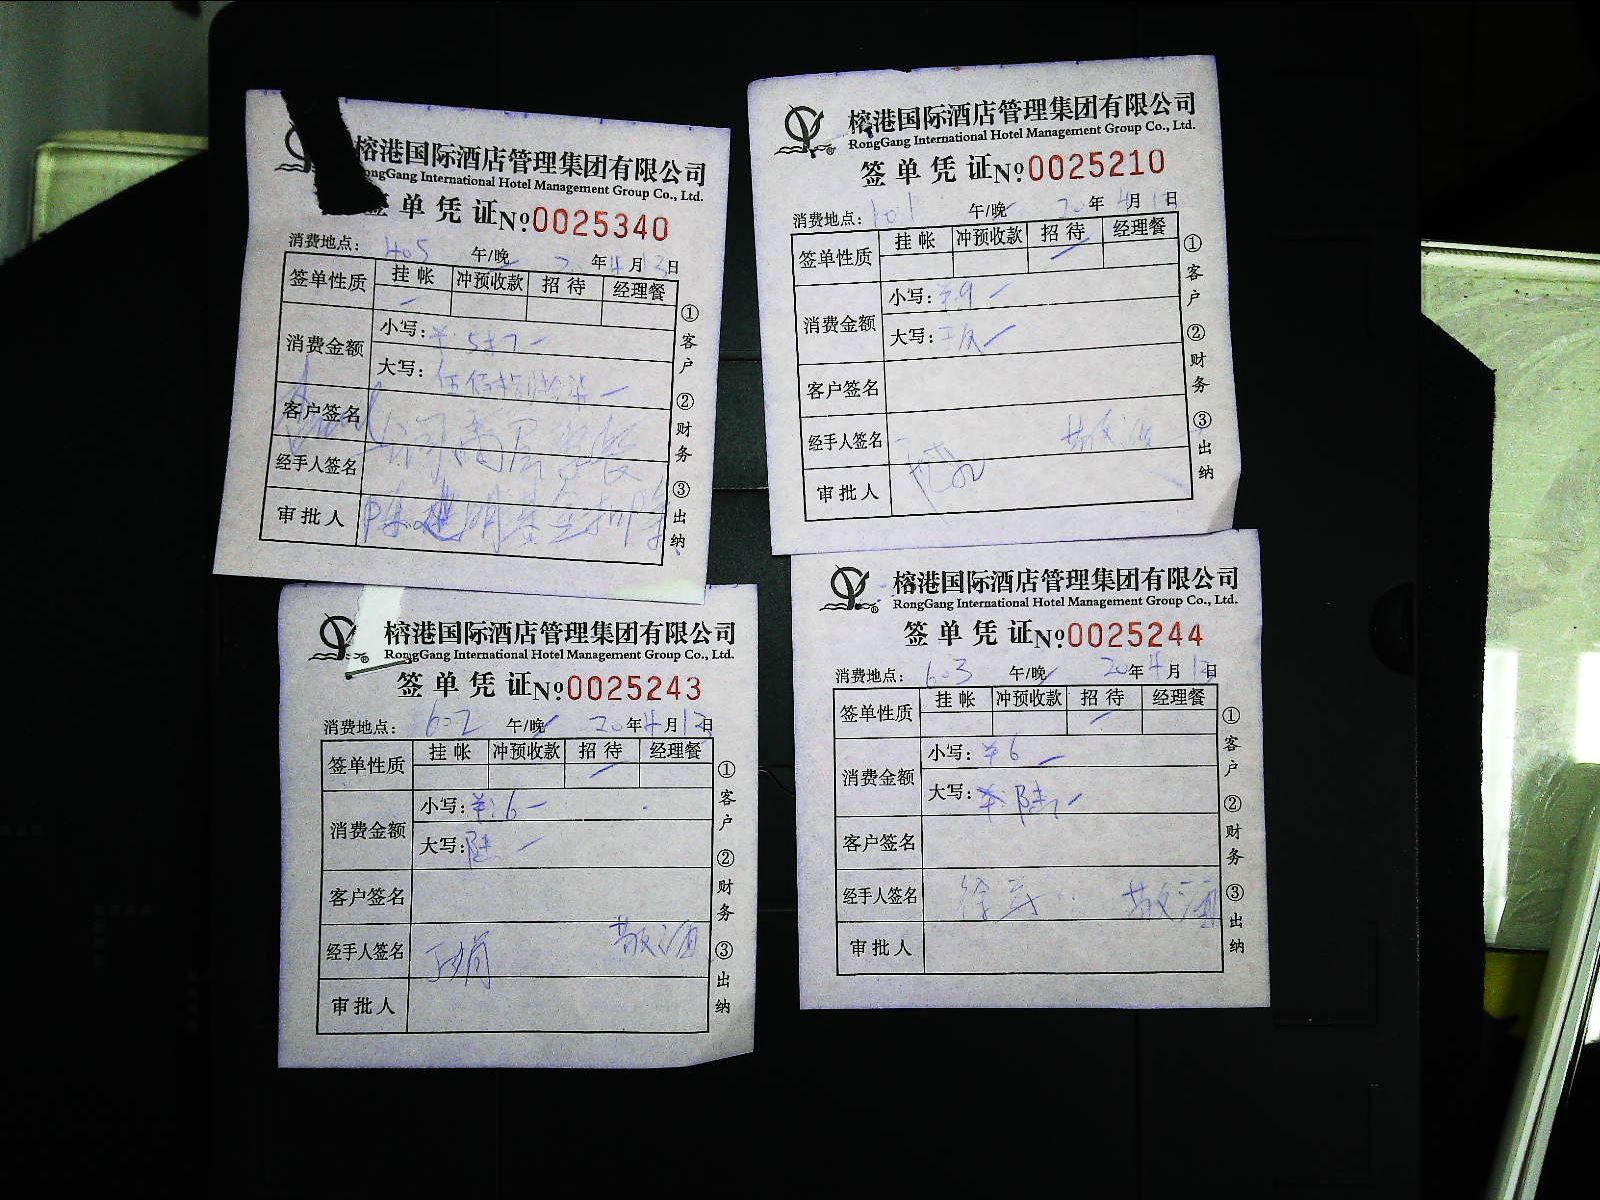 榕港国际酒店管理集团有限公司
RongGang International Hotel Management Group Co., Ltd.
签单凭证 №0025340
消费地点: 405 午/晚 年4月13日
签单性质 挂帐 冲预收款 招待 经理餐
消费金额 小写:
大写:
客户签名
经手人签名
审批人
①客户 ②财务 ③出纳
榕港国际酒店管理集团有限公司
RongGang International Hotel Management Group Co., Ltd.
签单凭证 №0025210
消费地点: 101 午/晚 20年4月1日
签单性质 挂帐 冲预收款 招待 经理餐
消费金额 小写:
大写:
客户签名
经手人签名
审批人
①客户 ②财务 ③出纳
榕港国际酒店管理集团有限公司
RongGang International Hotel Management Group Co., Ltd.
签单凭证 №0025243
消费地点: 602 午/晚 20年4月13日
签单性质 挂帐 冲预收款 招待 经理餐
消费金额 小写: ¥:6
大写: 陆
客户签名
经手人签名 丁娟
审批人
①客户 ②财务 ③出纳
榕港国际酒店管理集团有限公司
RongGang International Hotel Management Group Co., Ltd.
签单凭证 №0025244
消费地点: 603 午/晚 20年4月13日
签单性质 挂帐 冲预收款 招待 经理餐
消费金额 小写: ¥6
大写: 陆
客户签名
经手人签名
审批人
①客户 ②财务 ③出纳